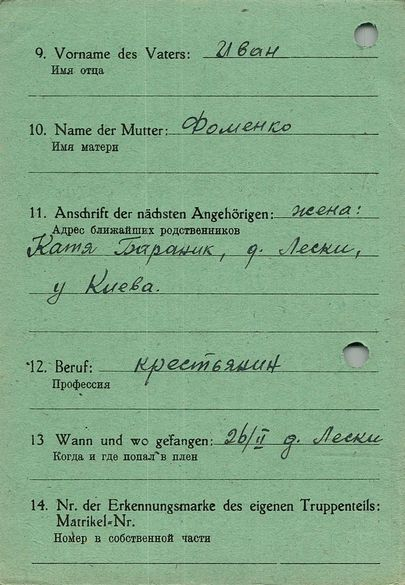 9. Vorname des Vaters: Иван
Имя отца
10. Name der Mutter: Фоменко
Имя матери
11. Anschrift der nächsten Angehörigen: жена:
Адрес ближайших родственников
Катя Бараник, д. Лески,
у Киева.
12. Beruf: крестьянин
Профессия
13 Wann und wo gefangen: 26/II д. Лески
Когда и где попал в плен
14. Nr. der Erkennungsmarke des eigenen Truppenteils:
Matrikel-Nr.
Номер в собственной части